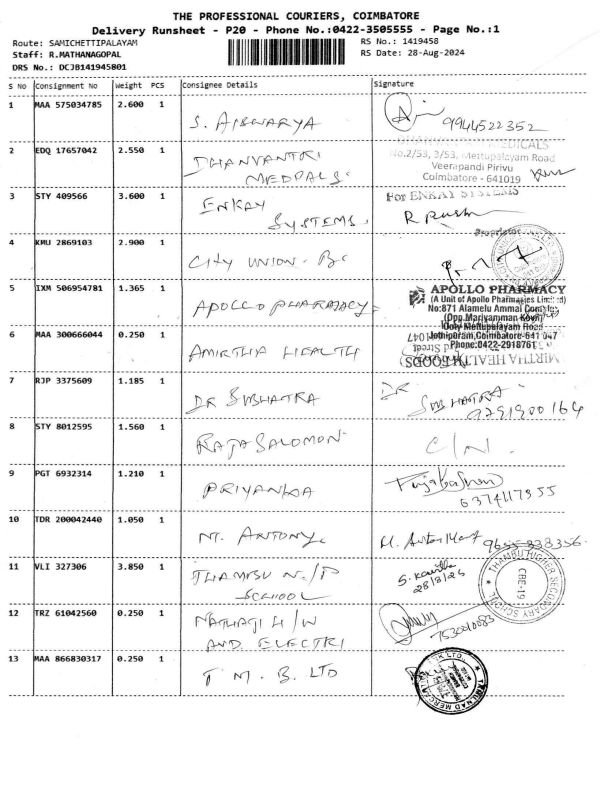 THE PROFESSIONAL COURIERS, COIMBATORE
Delivery Runsheet - P20 - Phone No.:0422-3505555 - Page No.:1
Route: SAMICHETTIPALAYAM RS No.: 1419458
Staff: R.MATHANAGOPAL RS Date: 28-Aug-2024
DRS No.: DCJB141945801
S No Consignment No Weight PCS Consignee Details Signature
1 MAA 575034785 2.600 1 S. AISWARYA 9944522352
2 EDQ 17657042 2.550 1 DHANVANTRI
MEDPALS. MEDICALS
No.2/53, 3/53, Mettupalayam Road
Veerapandi Pirivu
Coimbatore - 641019
3 STY 409566 3.600 1 ENKAY
SYSTEMS. For ENKAY SYSTEMS
Proprietor
4 KMU 2869103 2.900 1 CITY UNION. BC
5 IXM 506954781 1.365 1 APOLLO PHARMACY
APOLLO PHARMACY
(A Unit of Apollo Pharmacies Limited)
No:871 Alamelu Ammal Complex
(Opp.Mariyamman Kovil)
Ooty Mettupalayam Road
Jothipuram,Coimbatore-641 047
Phone:0422-2918761
6 MAA 300666044 0.250 1 AMIRTHA HEALTH
MIRTHA HEALTH FOODS
7 RJP 3375609 1.185 1 DR SUBHATRA DR
SUBHATRA
9791900164
8 STY 8012595 1.560 1 RAJA SALOMON C/N.
9 PGT 6932314 1.210 1 PRIYANKA
6374117955
10 TDR 200042440 1.050 1 M. ANTONY. 9655838356
11 VLI 327306 3.850 1 THAMBU N./P
SCHOOL S. Kavitha
28/8/24
THAMBU HIGHER SECONDARY SCHOOL
CBE-19
12 TRZ 61042560 0.250 1 NATHAJI H/W
AND ELECTRI 7530010083
13 MAA 866830317 0.250 1 T M. B. LTD
TAMILNAD MERCANTILE BANK LTD